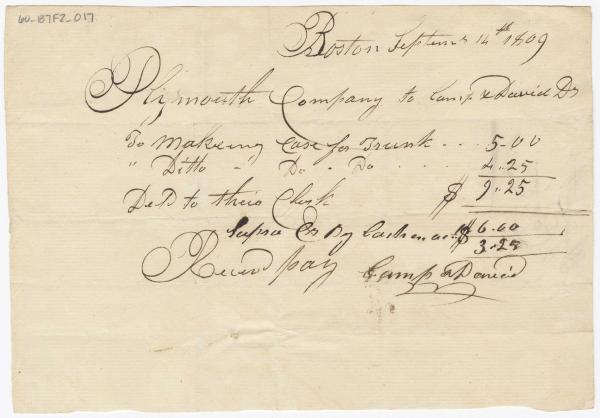 60-B7F2-017
Boston Septemr 14th 1809
Plymouth Company to Camp & David Dr
To Making Case for Trunk ... 5.00
" Ditto - Do - Do ... 4.25
Deld to their Clerk $ 9.25
Supra Cr By Cash on ac $ 6.00
3.25
Receivd pay Camp & David